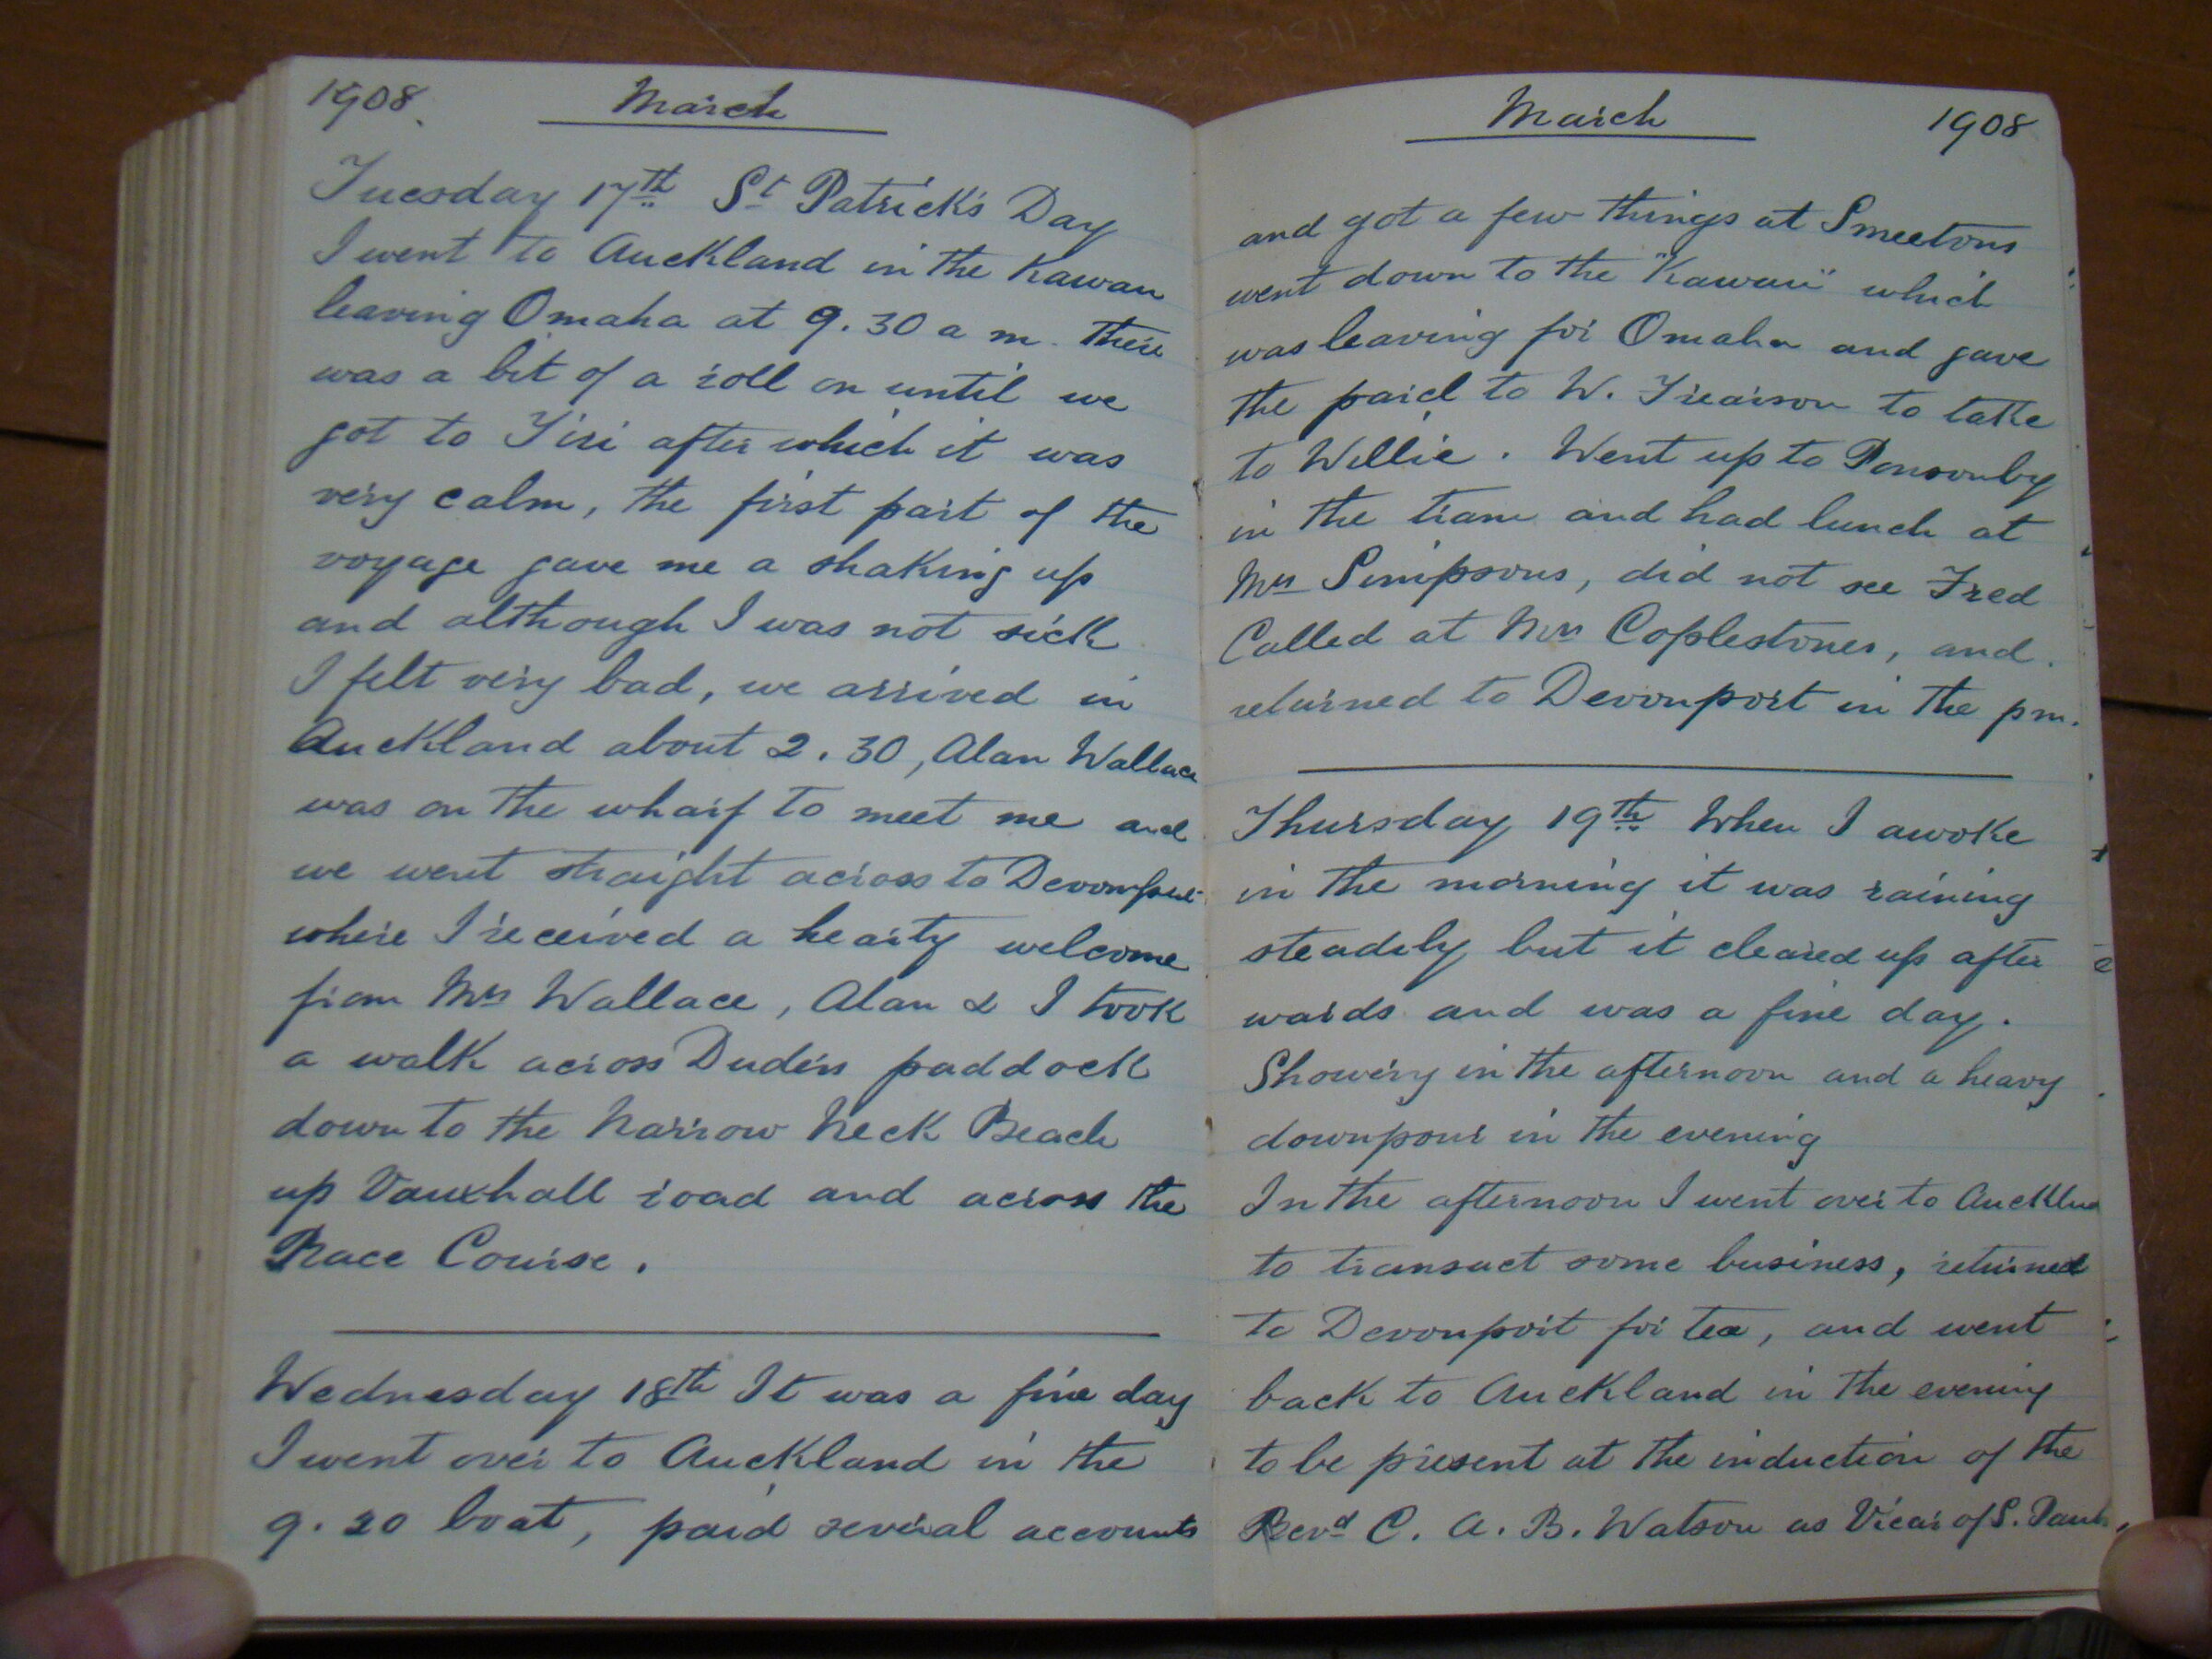 1908. March
Tuesday 17th St Patrick's Day
I went to Auckland in the Kawau
leaving Omaha at 9.30 a m. There
was a bit of a roll on until we
got to Tiri after which it was
very calm, the first part of the
voyage gave me a shaking up
and although I was not sick
I felt very bad, we arrived in
Auckland about 2.30, Alan Wallace
was on the wharf to meet me and
we went straight across to Devonport
where I received a hearty welcome
from Mrs Wallace, Alan & I took
a walk across Duders paddock
down to the Narrow Neck Beach
up Vauxhall road and across the
Race Course.
Wednesday 18th It was a fine day
I went over to Auckland in the
9.20 boat, paid several accounts
March 1908
and got a few things at Smeetons
went down to the "Kawau" which
was leaving for Omaha and gave
the to W. to take
to Willie. Went up to Ponsonby
in the tram and had lunch at
Mrs Simpsons, did not see Fred
Called at Mrs Coplestones, and
returned to Devonport in the pm.
Thursday 19th When I awoke
in the morning it was raining
steadily but it cleared up after
wards and was a fine day.
Showery in the afternoon and a heavy
downpour in the evening
In the afternoon I went over to Auckland
to transact some business, returned
to Devonport for tea, and went
back to Auckland in the evening
to be present at the induction of the
Revd C. A. B. Watson as Vicar of S. Pauls,